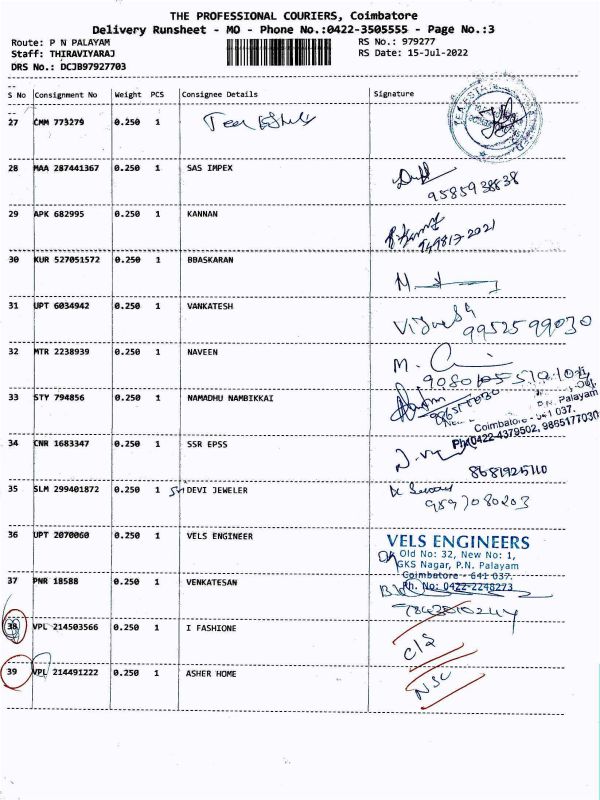 THE PROFESSIONAL COURIERS, Coimbatore
Delivery Runsheet - MO - Phone No.:0422-3505555 - Page No.:3
Route: P N PALAYAM RS No.: 979277
Staff: THIRAVIYARAJ RS Date: 15-Jul-2022
DRS No.: DCJB97927703
S No Consignment No Weight PCS Consignee Details Signature
27 CMM 773279 0.250 1
28 MAA 287441367 0.250 1 SAS IMPEX
9585938838
29 APK 682995 0.250 1 KANNAN
30 KUR 527051572 0.250 1 BBASKARAN
31 UPT 6034942 0.250 1 VANKATESH
9952599030
32 MTR 2238939 0.250 1 NAVEEN
33 STY 794856 0.250 1 NAMADHU NAMBIKKAI
P.N. Palayam
Coimbatore - 641 037.
Ph:0422-4379502, 9865177030
34 CNR 1683347 0.250 1 SSR EPSS
8681925110
35 SLM 299401872 0.250 1 Sri DEVI JEWELER
36 UPT 2070060 0.250 1 VELS ENGINEER
VELS ENGINEERS
Old No: 32, New No: 1,
GKS Nagar, P.N. Palayam
Coimbatore - 641 037.
Ph. No: 0422-2248273
37 PNR 18588 0.250 1 VENKATESAN
38 VPL 214503566 0.250 1 I FASHIONE
C/S
39 VPL 214491222 0.250 1 ASHER HOME
NSC